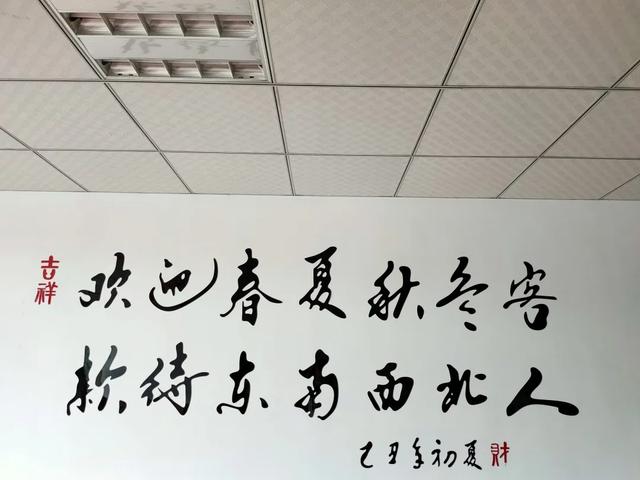 吉祥
欢迎春夏秋冬客
款待东南西北人
己丑年初夏 财